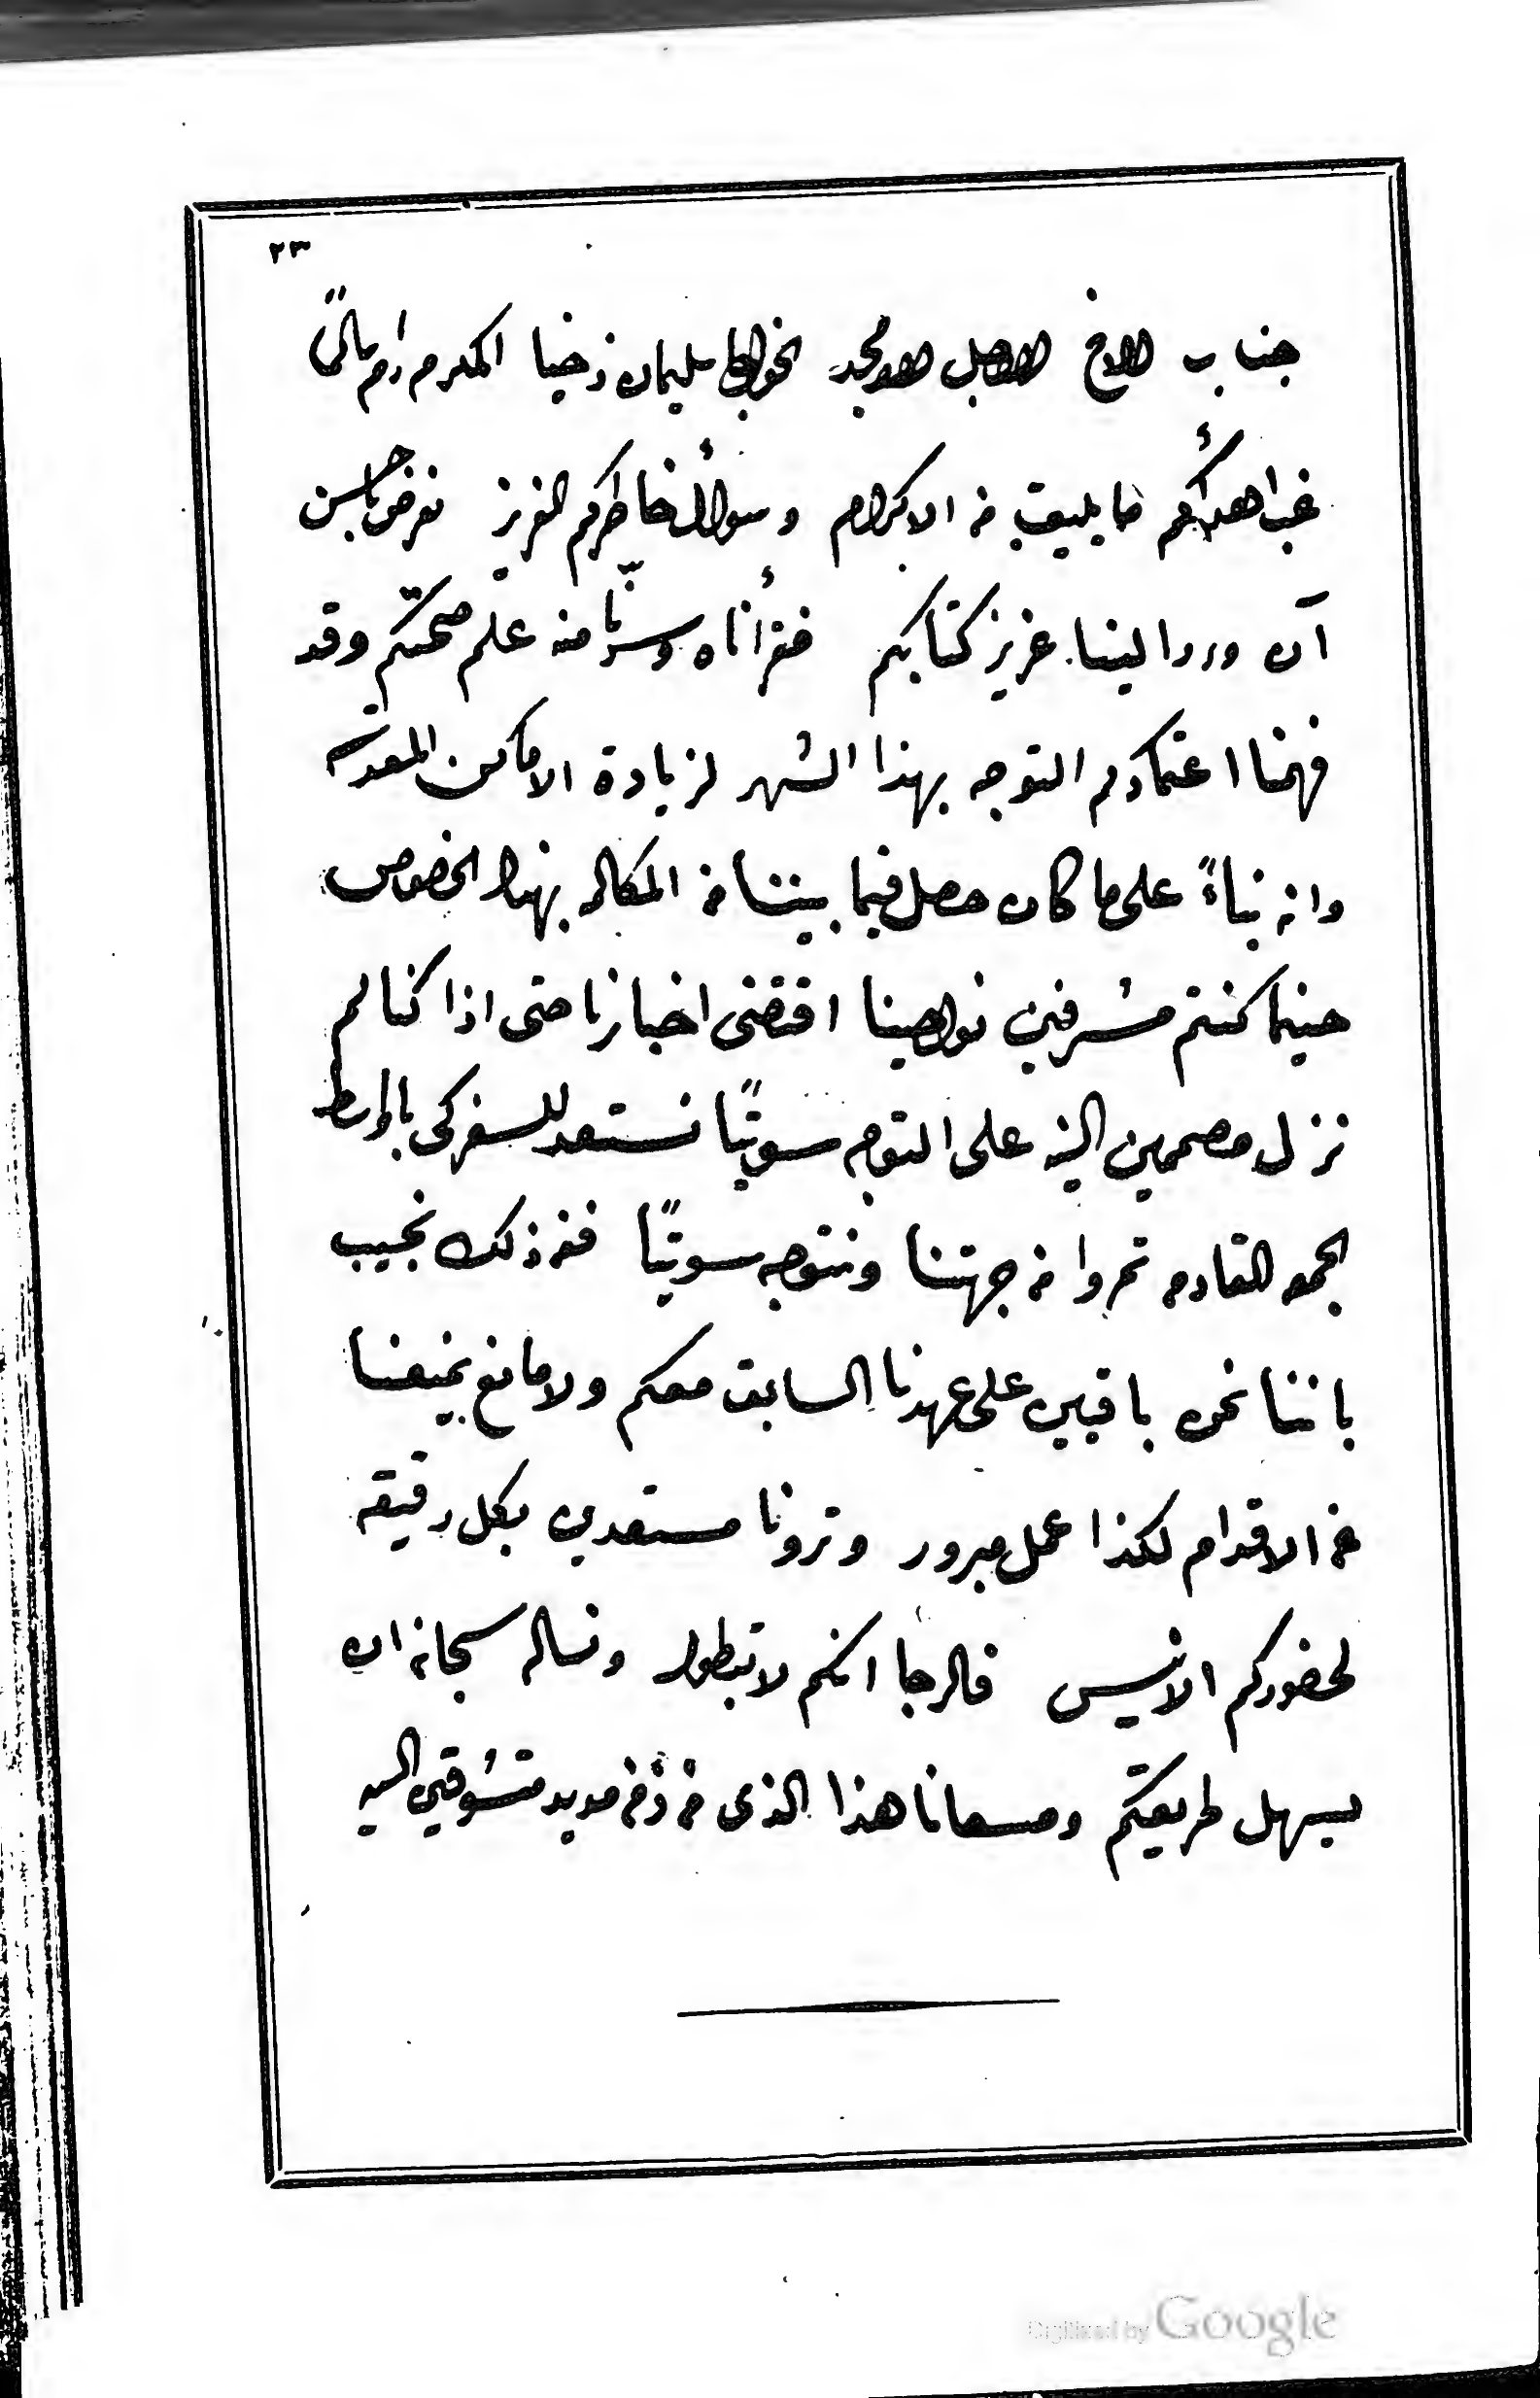 ٢٣
جناب الاخ الاجل الامجد الخواجا سليمان زخيا المكرم دام سالمًا
غب اهدائكم ما يليق من الاكرام وسؤال خاطركم العزيز نعرض باحسن
آن ورد الينا عزيز كتابكم فقرأناه وسرّنا منه علم صحتكم وقد
فهمنا اعتمادكم التوجه بهذا الشهر لزيارة الاماكن المقدسه
وانه بناءً على ما كان حصل فيما بيننا من المكالمه بهذا الخصوص
حينما كنتم مشرفين نواحينا اقتضى اخبارنا حتى اذا كنا لم
نزل مصممين النيه على التوجه سويتًا نستعد للسفر كى باواسط
الجمعه القادمه تمروا من جهتنا ونتوجه سويتًا فمن ذلك نجيب
باننا نحن باقيين على عهدنا السابق معكم ولا مانع يمنعنا
عن الاقدام لكذا عمل مبرور وترونا مستعدين بكل دقيقه
لحضوركم الانيس فالرجا انكم لا تبطوا ونساله سبحانه ان
يسهل طريقكم ومسعانا هذا الذى من زمن مديد متشوقين اليه
Digitized by Google